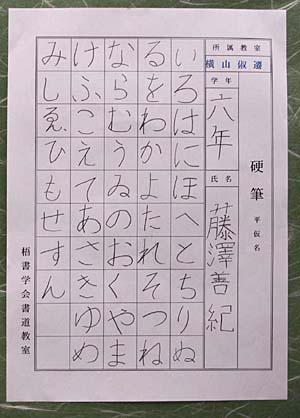 硬筆 平仮名
所属教室
横山
学年
六年
氏名
藤澤善紀
いろはにほへとちりぬ
るをわかよたれそつね
ならむうゐのおくやま
けふこえてあさきゆめ
みしゑひもせすん
梧書学会書道教室